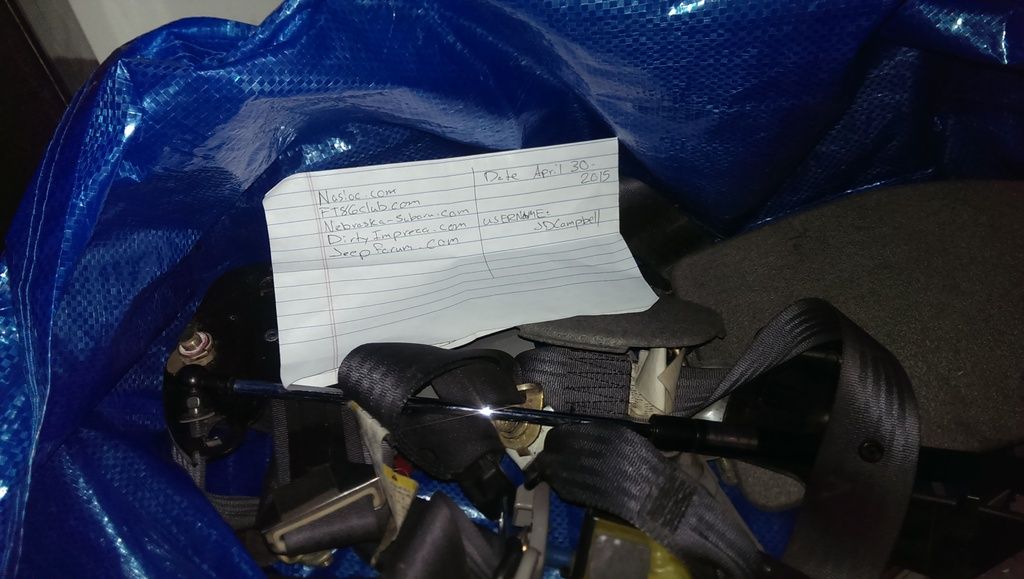 Nasioc.com
FT86club.com
Nebraska-Subaru.com
DirtyImpreza.com
JeepForum.com
Date April 30-
2015
USERNAME:
JDCampbell